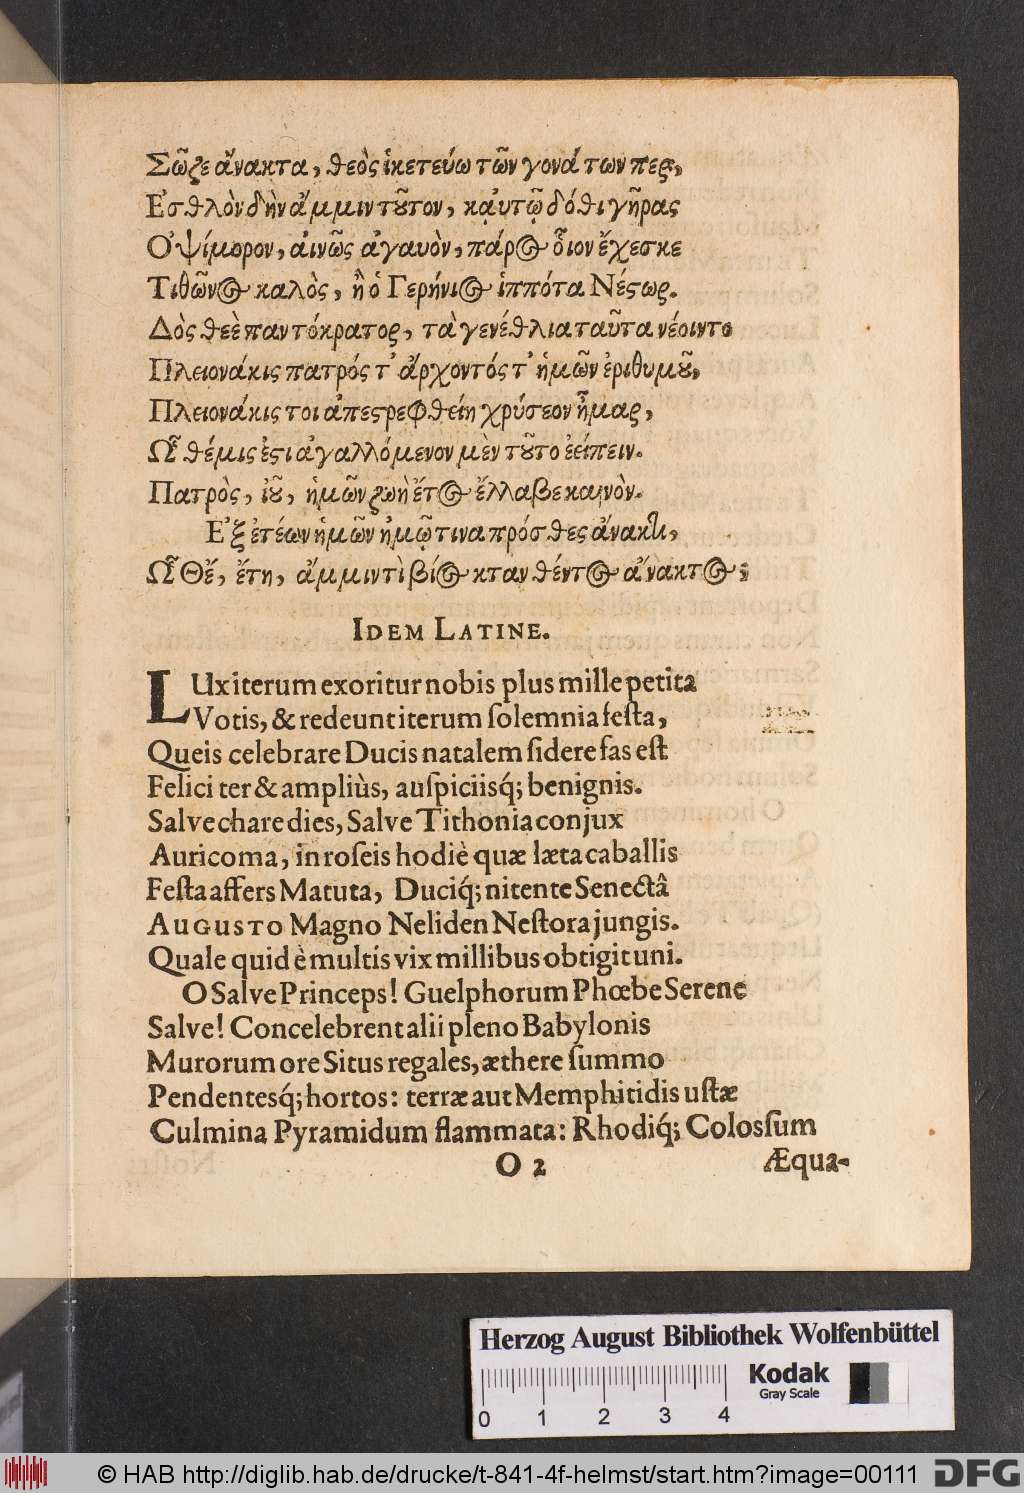 Σῶζε ἄνακτα, θεὸς ἱκετεύω τῶν γονάτων περ,
Ἐσθλὸν δὴν ἄμμιν τῦτον, καὐτῷ δόθι γῆρας
Ὀψίμορον, αἰνῶς ἀγαυὸν, πάρος οἷον ἔχεσκε
Τιθῶνος καλὸς, ἢ ὁ Γερήνιος ἱππότα Νέστωρ.
Δὸς θεὲ παντόκρατορ, τὰ γενέθλια ταῦτα νέοιντο
Πλειονάκις πατρός τ' ἄρχοντός τ' ἡμῶν ἐριθυμοῦ,
Πλειονάκις τοι ἀπεστρεφθείη χρύσεον ἦμαρ,
Ὧ θέμις ἐστι ἀγαλλόμενον μὲν τοῦτο ἐείπειν.
Πατρὸς, ἰοῦ, ἡμῶν ζωὴ ἔτος ἔλλαβε καινὸν.
Ἐξ ἐτέων ἡμῶν ἠμῷ τινα πρόσθες ἄνακτι,
Ὦ Θεέ, ἔτη, ἄμμιν τὶ βίος κτανθέντος ἄνακτος;
IDEM LATINE.
LUx iterum exoritur nobis plus mille petita
Votis, & redeunt iterum solemnia festa,
Queis celebrare Ducis natalem sidere fas est
Felici ter & ampliùs, auspiciisq́; benignis.
Salve chare dies, Salve Tithonia conjux
Auricoma, in roseis hodiè quæ læta caballis
Festa affers Matuta, Duciq́; nitente Senectâ
AUGUSTO Magno Neliden Nestora jungis.
Quale quid è multis vix millibus obtigit uni.
O Salve Princeps! Guelphorum Phœbe Serene
Salve! Concelebrent alii pleno Babylonis
Murorum ore Situs regales, æthere summo
Pendentesq́; hortos: terræ aut Memphitidis ustæ
Culmina Pyramidum flammata: Rhodiq́; Colossum
O 2 Æqua-
Herzog August Bibliothek Wolfenbüttel
Kodak
Gray Scale
0 1 2 3 4
© HAB http://diglib.hab.de/drucke/t-841-4f-helmst/start.htm?image=00111 DFG